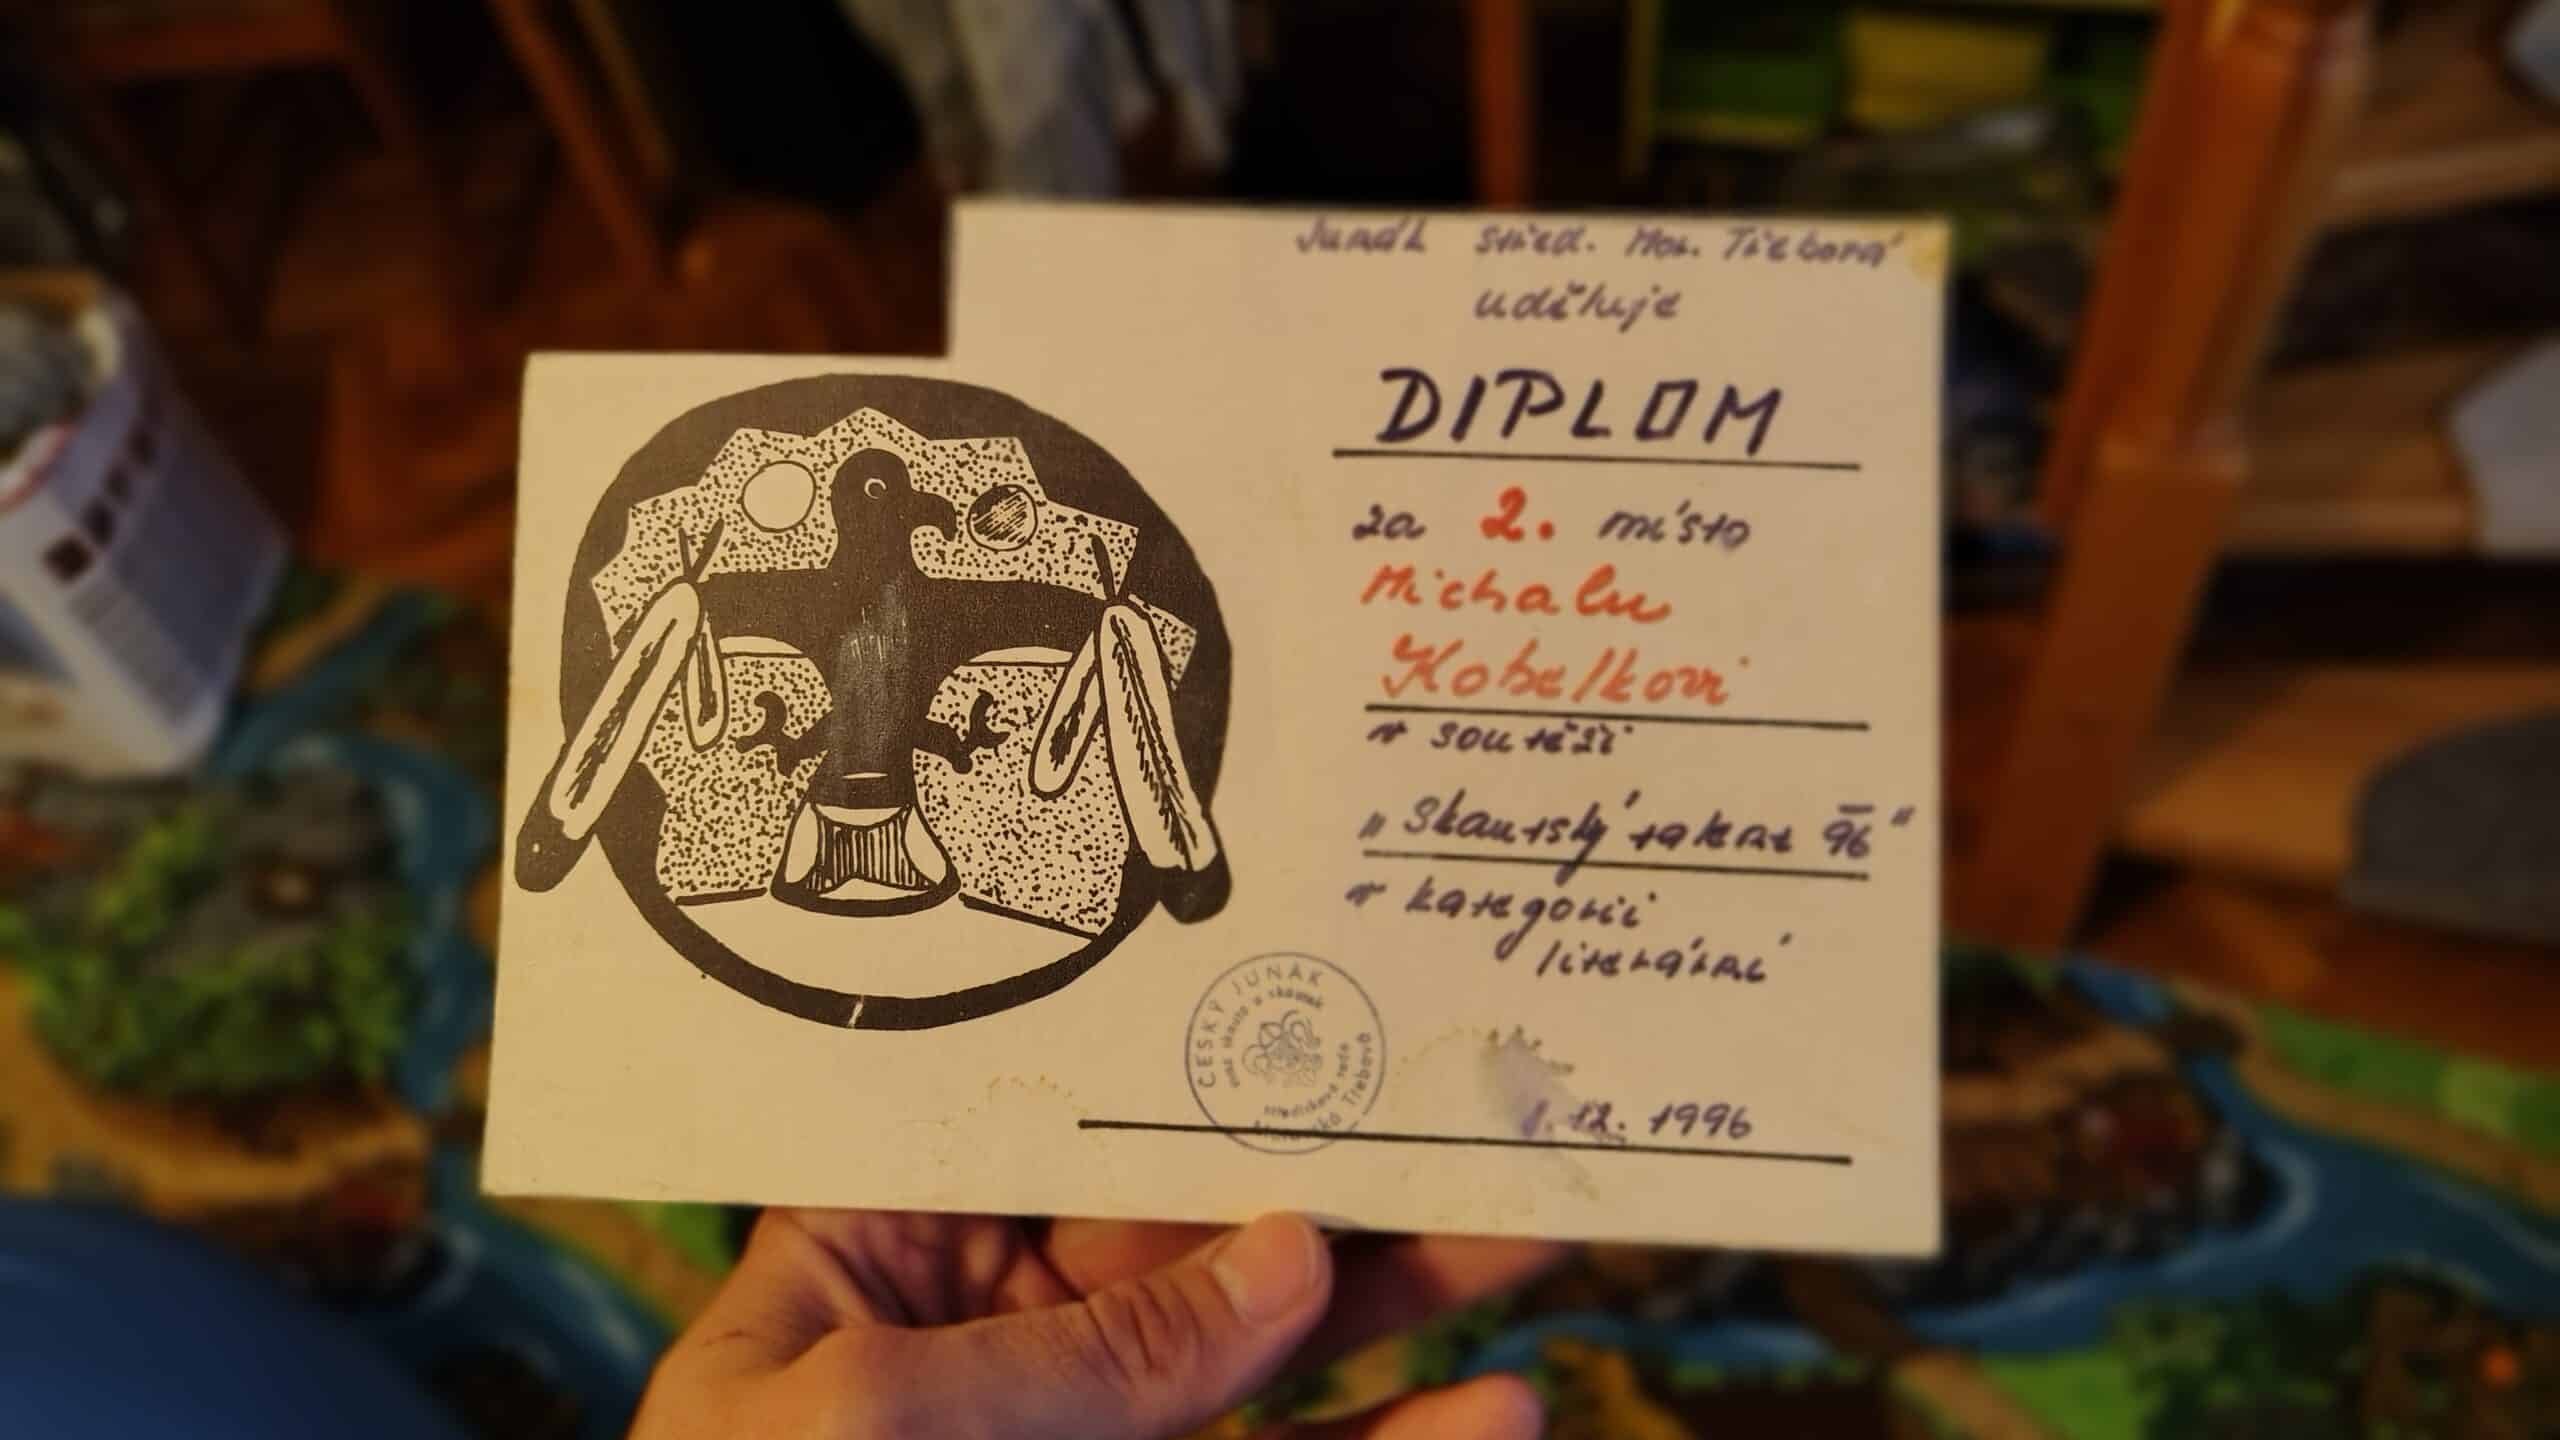 Junák střed. Mor. Třebová
uděluje
DIPLOM
za 2. místo
Michalu
Kobelkovi
v soutěži
„Skautský talent 96“
v kategorii
literární
ČESKÝ JUNÁK
svaz skautů a skautek
středisková rada
Moravská Třebová
1.12.1996